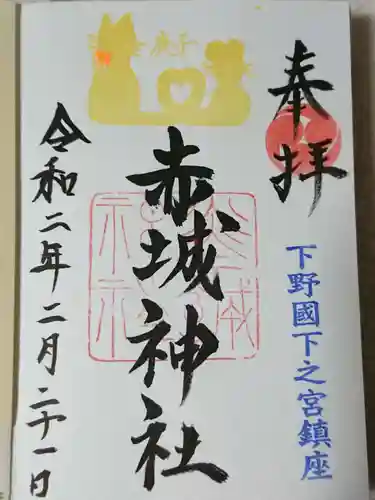 奉拝
下野國下之宮鎮座
庚子
赤城神社
令和二年二月二十一日